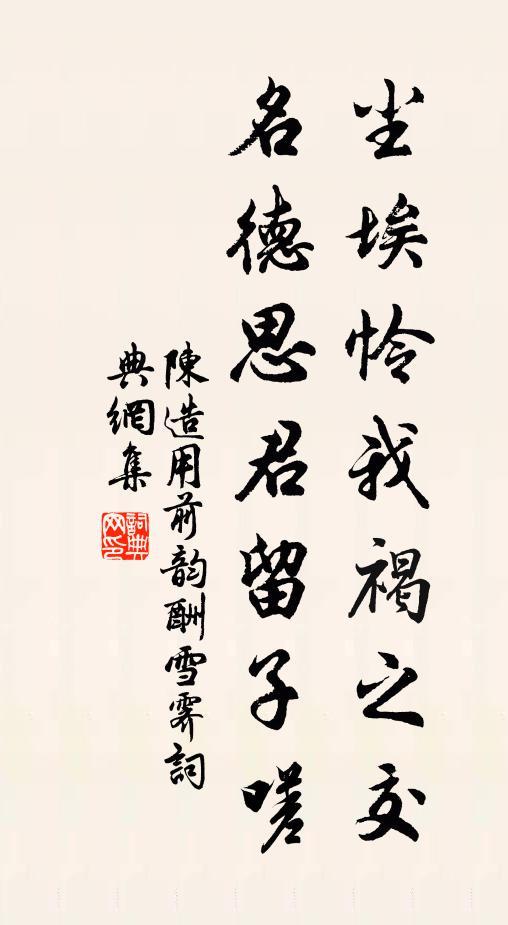 尘埃怜我褐之交
名德思君留子嗟
陳造用前韵酬雪霁詞
典網集
詞典
网印